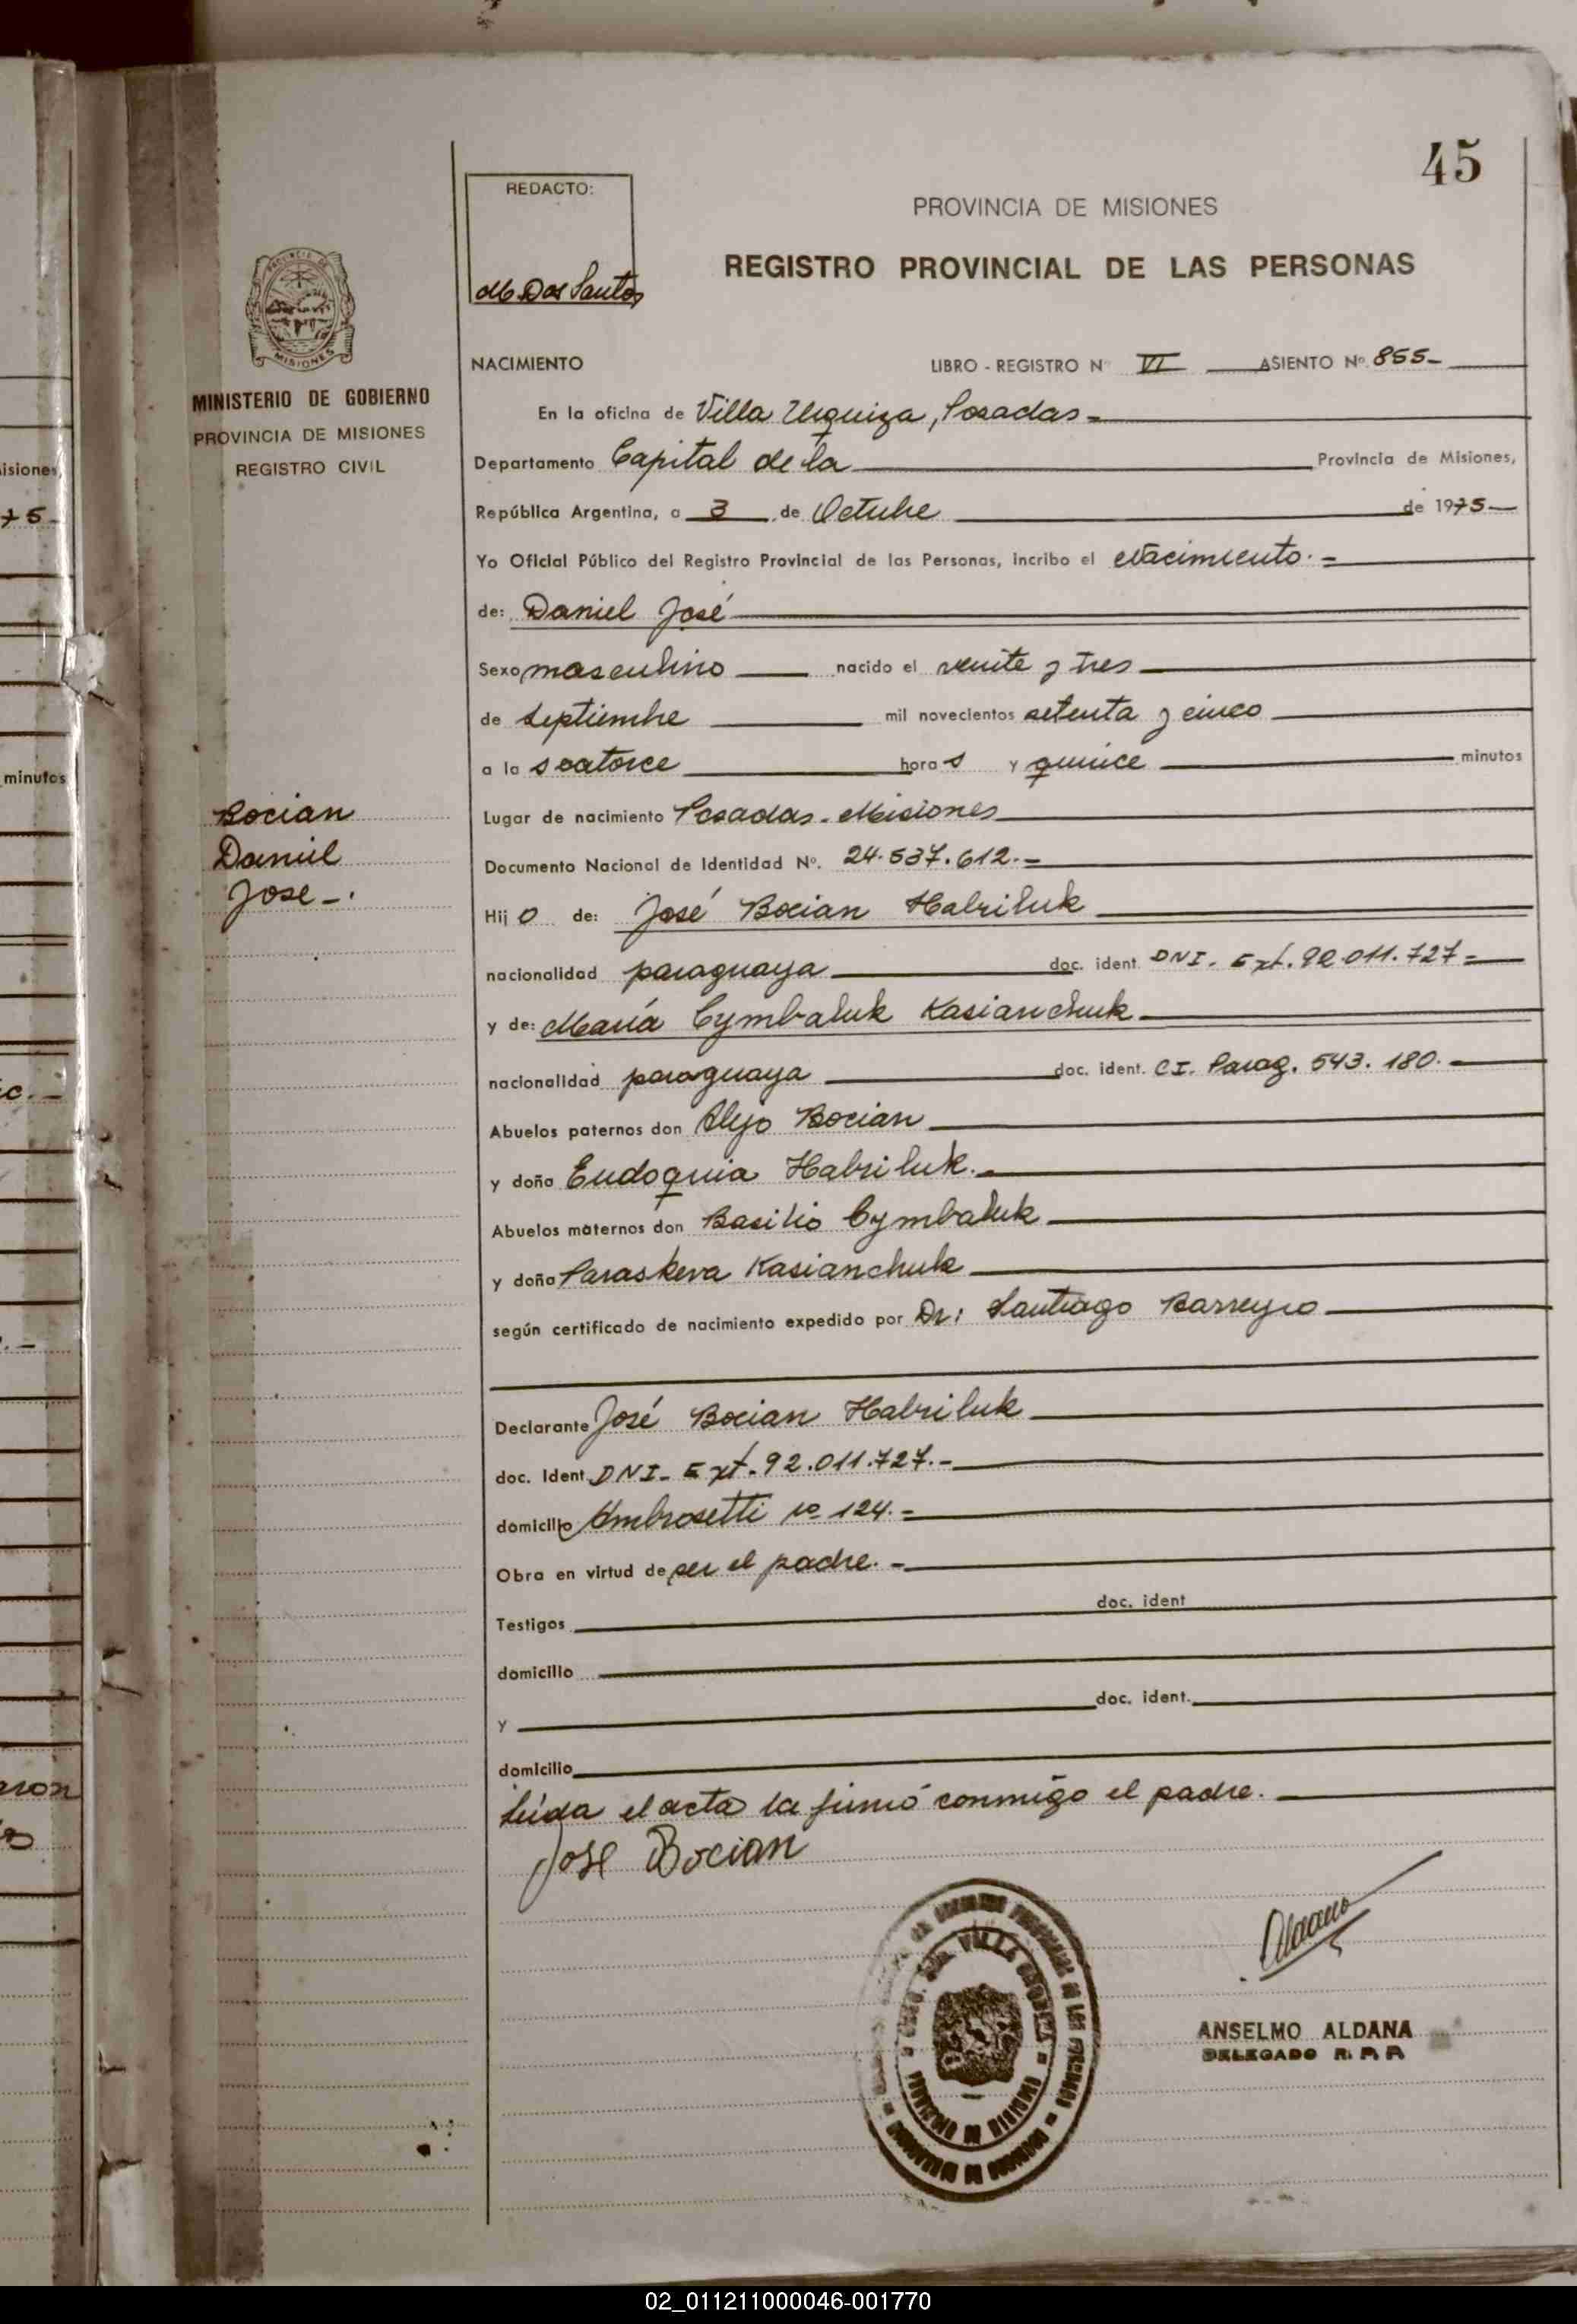 45
REDACTO:
M. Dos Santos
PROVINCIA DE MISIONES
REGISTRO PROVINCIAL DE LAS PERSONAS
PROVINCIA DE
MISIONES
MINISTERIO DE GOBIERNO
PROVINCIA DE MISIONES
REGISTRO CIVIL
NACIMIENTO LIBRO - REGISTRO Nº VI ASIENTO Nº 855-
En la oficina de Villa Urquiza, Posadas=
Departamento Capital de la Provincia de Misiones,
República Argentina, a 3 de Octubre de 1975-
Yo Oficial Público del Registro Provincial de las Personas, incribo el Nacimiento.=
de: Daniel José
Sexo masculino nacido el veinte y tres
de septiembre mil novecientos setenta y cinco
a la s catorce hora s y quince minutos
Lugar de nacimiento Posadas - Misiones
Documento Nacional de Identidad Nº. 24.537.612.-
Bocian
Daniel
Jose -.
Hij o de: José Bocian Habriluk
nacionalidad paraguaya doc. ident. DNI. Ext. 92.011.727=
y de: María Cymbaluk Kasianchuk
nacionalidad paraguaya doc. ident. CI. Parag. 543.180.-
Abuelos paternos don Alejo Bocian
y doña Eudoquia Habriluk.-
Abuelos maternos don Basilio Cymbaluk
y doña Paraskeva Kasianchuk
según certificado de nacimiento expedido por Dr: Santiago Barreyro
Declarante José Bocian Habriluk
doc. Ident. DNI- Ext. 92.011.727.-
domicilio Ambrosetti nº 124.=
Obra en virtud de ser el padre.-
Testigos doc. ident
domicilio
y doc. ident.
domicilio
Leída el acta la firmó conmigo el padre.
Jose Bocian
Aldana
ANSELMO ALDANA
DELEGADO R. P. P.
VILLA URQUIZA
PROVINCIA DE MISIONES
isiones,
75-
minutos
c.-
02_011211000046-001770